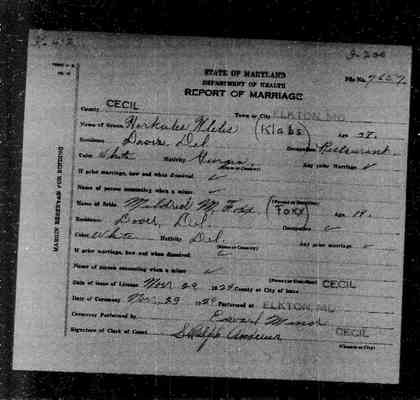 STATE OF MARYLAND
DEPARTMENT OF HEALTH
REPORT OF MARRIAGE
File No. 7657
County CECIL Town or City ELKTON, MD.
Name of Groom (Klabs) Age 28
Residence Dover Del Occupation Restaurant
Color White Nativity (State or Country) Any prior Marriage ✓
If prior marriage, how and when dissolved ✓
Name of person consenting when a minor ✓ (Parent or Guardian)
Name of Bride Mildred M. Foxx (Foxx) Age 19
Residence Dover, Del. Occupation ✓
Color White Nativity Del. (State or Country) Any prior marriage ✓
If prior marriage, how and when dissolved ✓
Name of person consenting when a minor ✓ (Parent or Guardian)
Date of issue of License Nov 29 1924 County or City of Issue CECIL
Date of Ceremony Nov. 29 192 Performed at ELKTON, MD
Ceremony Performed by Edward
Signature of Clerk of Court CECIL
(County or City)
MARGIN RESERVED FOR BINDING